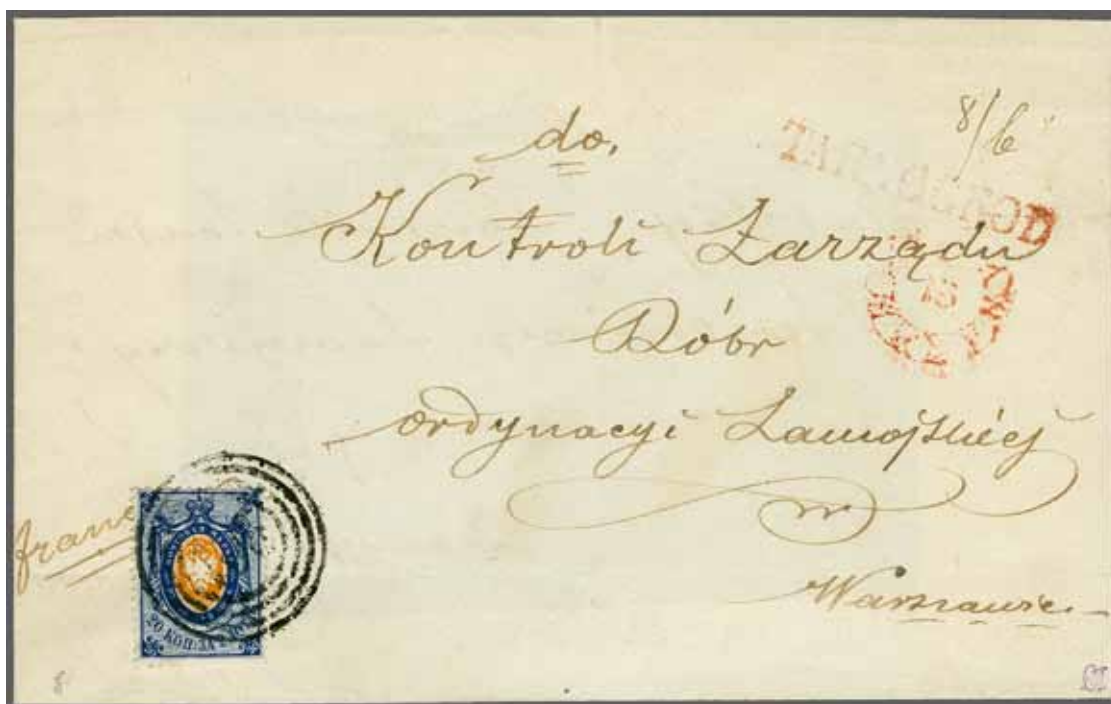 8/6
do.
Kontroli Zarządu
Dóbr
ordynacyi Zamojskiéj
w
Warszawie
franc
20 КОП. ЗА